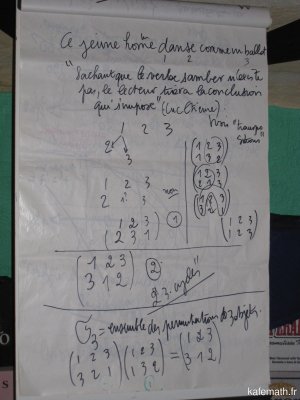 Ce jeune homme danse comme un ballot
1 2 3
"Sachant que le verbe samber n'existe
pas, le lecteur tirera la conclusion
qui s'impose" (Luc Etienne).
1 2 3
2 3
Trois "transpo
sitions"
1 2 3
2 1 3
non
(1 2 3
2 3 1) 1
(1 2 3
1 3 2)
(1 2 3
2 1 3)
(1 2 3
3 2 1)
(1 2 3
1 2 3)
(1 2 3
3 1 2) 2
2 3-cycles"
3 = ensemble des permutations de 3 objets.
(1 2 3
3 2 1) (1 2 3
1 3 2) = (1 2 3
3 1 2)
kafemath.fr